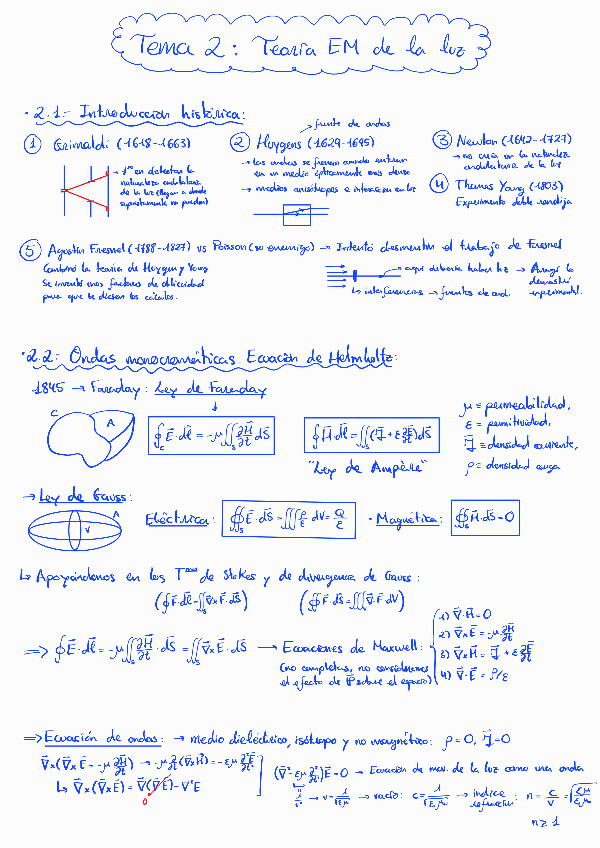 Tema 2: Teoría EM de la luz
· 2.1: Introducción histórica:
① Grimaldi (1618-1663)
→ 1º en detectar la
naturaleza ondulatoria
de la luz (llegan a donde
supuestamente no pueden)
→ frente de ondas
② Huygens (1629-1695)
→ las ondas se frenan cuando entran
en un medio ópticamente más denso
→ medios anisótropos e interacción con luz
③ Newton (1642-1727)
→ no creía en la naturaleza
ondulatoria de la luz
④ Thomas Young (1803)
Experimento doble rendija
⑤ Agustin Fresnel (1788-1827) vs Poisson (su enemigo) → Intentó desmentir el trabajo de Fresnel
Combinó la teoría de Huygens y Young
Se inventó unos factores de oblicuidad
para que le dieran los cálculos.
→ aquí debería haber luz → Arago lo
demostró
experimental.
↳ interferencias → fuentes de ond.
· 2.2: Ondas monocromáticas. Ecuación de Helmholtz:
1845 → Faraday: Ley de Faraday
C
A
∮c E⃗·dl⃗ = -μ∬s ∂H⃗/∂t dS⃗
∮ H⃗·dl⃗ = ∬s (J⃗ + ε ∂E⃗/∂t) dS⃗
"Ley de Ampère"
μ ≡ permeabilidad,
ε ≡ permitividad,
J⃗ ≡ densidad corriente,
ρ ≡ densidad carga
→ Ley de Gauss:
A
V
Eléctrica: ∯s E⃗·dS⃗ = ∭ ρ/ε dV = Q/ε · Magnética: ∯s H⃗·dS⃗ = 0
↳ Apoyándonos en los Tmas de Stokes y de divergencia de Gauss:
(∮F⃗·dl⃗ = ∬s ∇⃗×F⃗·dS⃗) (∯F⃗·dS⃗ = ∭∇⃗·F⃗ dV)
⇒ ∮E⃗·dl⃗ = -μ∬s ∂H⃗/∂t · dS⃗ = ∬s ∇⃗×E⃗·dS⃗ → Ecuaciones de Maxwell:
(no completas, no consideramos
el efecto de P⃗ sobre el espacio)
1) ∇⃗·H⃗ = 0
2) ∇⃗×E⃗ = -μ ∂H⃗/∂t
3) ∇⃗×H⃗ = J⃗ + ε ∂E⃗/∂t
4) ∇⃗·E⃗ = ρ/ε
⇒ Ecuación de ondas: → medio dieléctrico, isótropo y no magnético: ρ = 0, J⃗ = 0
∇⃗×(∇⃗×E⃗ = -μ ∂H⃗/∂t) → -μ ∂/∂t (∇⃗×H⃗) = -εμ ∂²E⃗/∂t²
↳ ∇⃗×(∇⃗×E⃗) = ∇⃗(∇⃗·E⃗) - ∇²E⃗
0
(∇⃗² - εμ ∂²/∂t²)E⃗ = 0 → Ecuación de mov. de la luz como una onda
1/v² → v = 1/√(εμ) → vacío: c = 1/√(ε₀μ₀) → índice
refracción: n = c/v = √(εμ/ε₀μ₀)
n ≥ 1